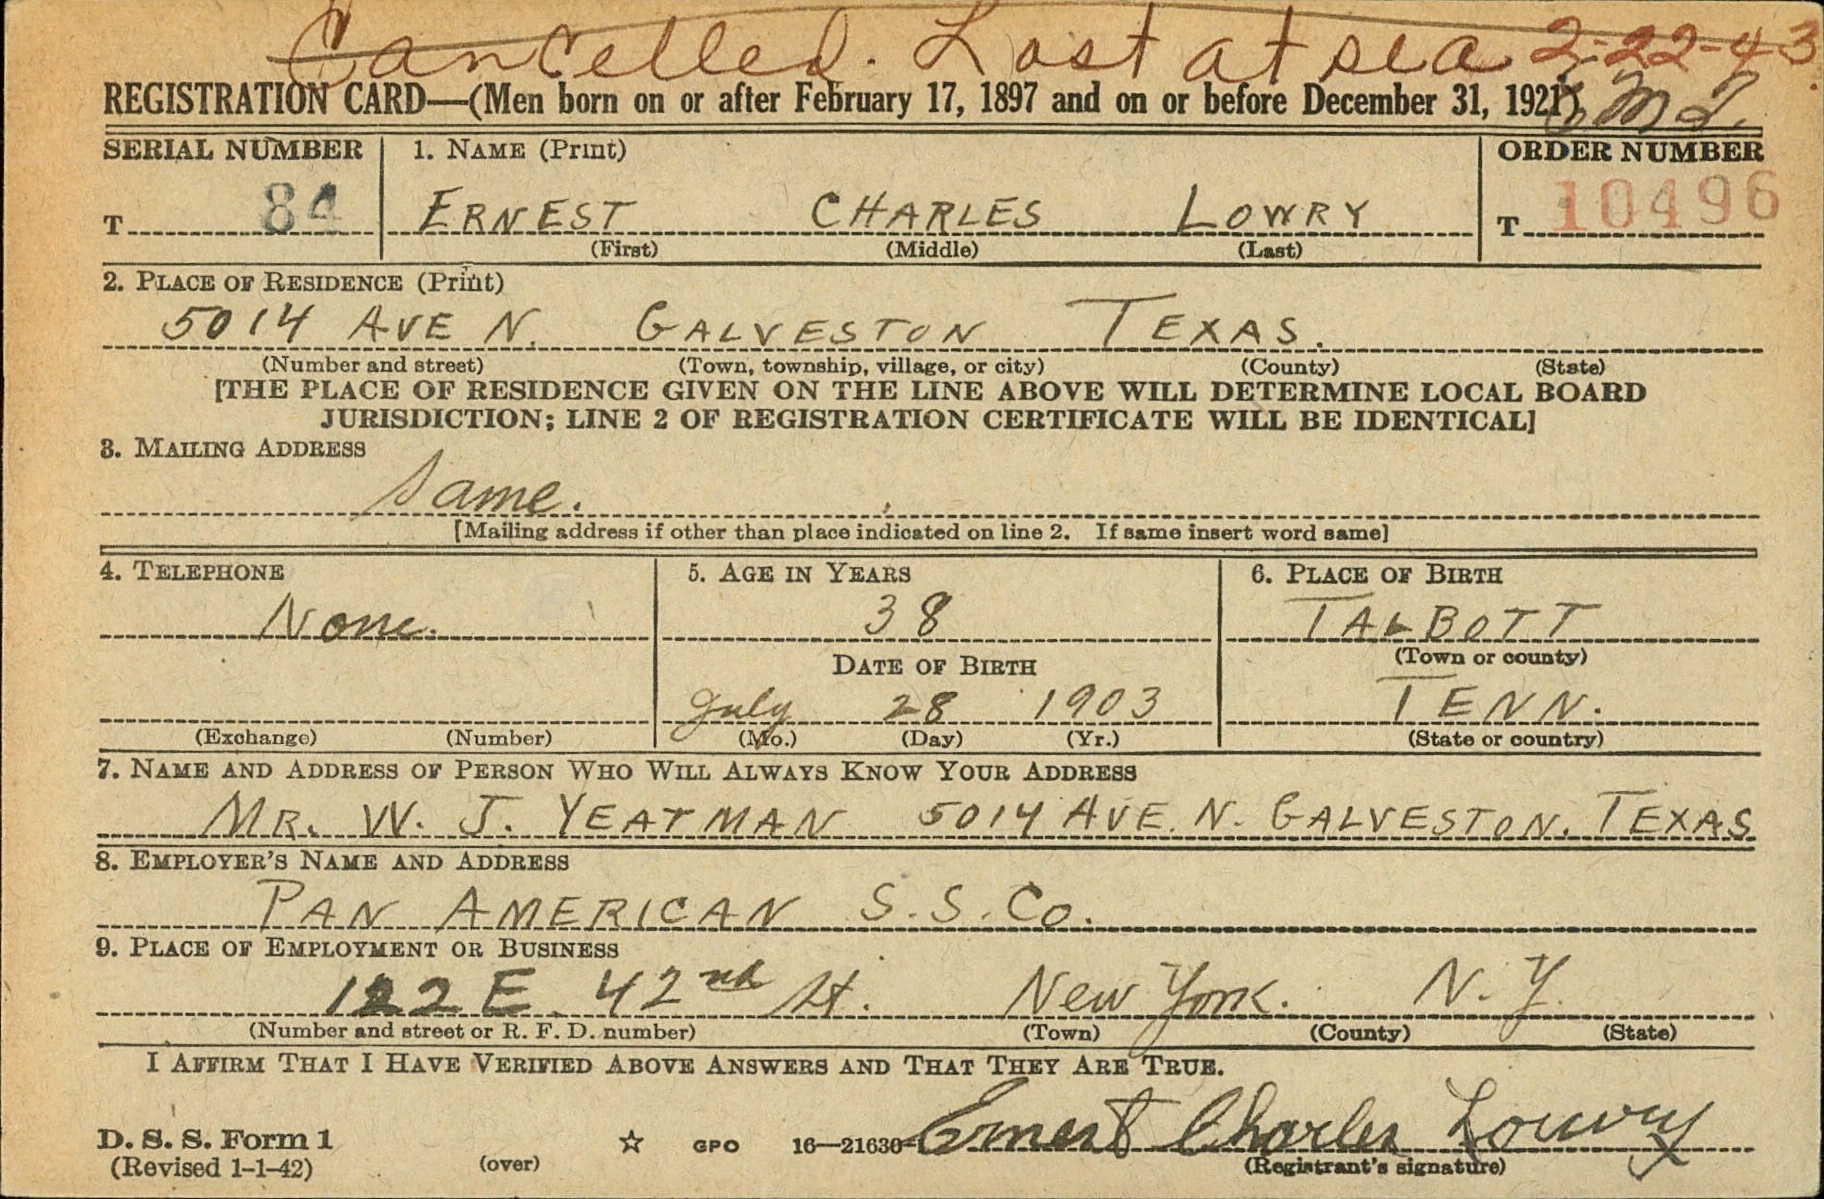 Cancelled. Lost at sea 2-22-43
REGISTRATION CARD—(Men born on or after February 17, 1897 and on or before December 31, 1921)
SERIAL NUMBER 1. NAME (Print) ORDER NUMBER
T 84 ERNEST CHARLES LOWRY T 10496
(First) (Middle) (Last)
2. PLACE OF RESIDENCE (Print)
5014 AVE N. GALVESTON TEXAS.
(Number and street) (Town, township, village, or city) (County) (State)
[THE PLACE OF RESIDENCE GIVEN ON THE LINE ABOVE WILL DETERMINE LOCAL BOARD
JURISDICTION; LINE 2 OF REGISTRATION CERTIFICATE WILL BE IDENTICAL]
3. MAILING ADDRESS
Same.
[Mailing address if other than place indicated on line 2. If same insert word same]
4. TELEPHONE 5. AGE IN YEARS 6. PLACE OF BIRTH
None. 38 TALBOTT
DATE OF BIRTH (Town or county)
July 28 1903 TENN.
(Exchange) (Number) (Mo.) (Day) (Yr.) (State or country)
7. NAME AND ADDRESS OF PERSON WHO WILL ALWAYS KNOW YOUR ADDRESS
MR. W. J. YEATMAN 5014 AVE. N. GALVESTON. TEXAS
8. EMPLOYER'S NAME AND ADDRESS
PAN AMERICAN S.S. Co.
9. PLACE OF EMPLOYMENT OR BUSINESS
122 E. 42nd St. New York. N. Y.
(Number and street or R. F. D. number) (Town) (County) (State)
I AFFIRM THAT I HAVE VERIFIED ABOVE ANSWERS AND THAT THEY ARE TRUE.
D. S. S. Form 1 ☆ GPO 16—21630-1 Ernest Charles Lowry
(Revised 1-1-42) (over) (Registrant's signature)